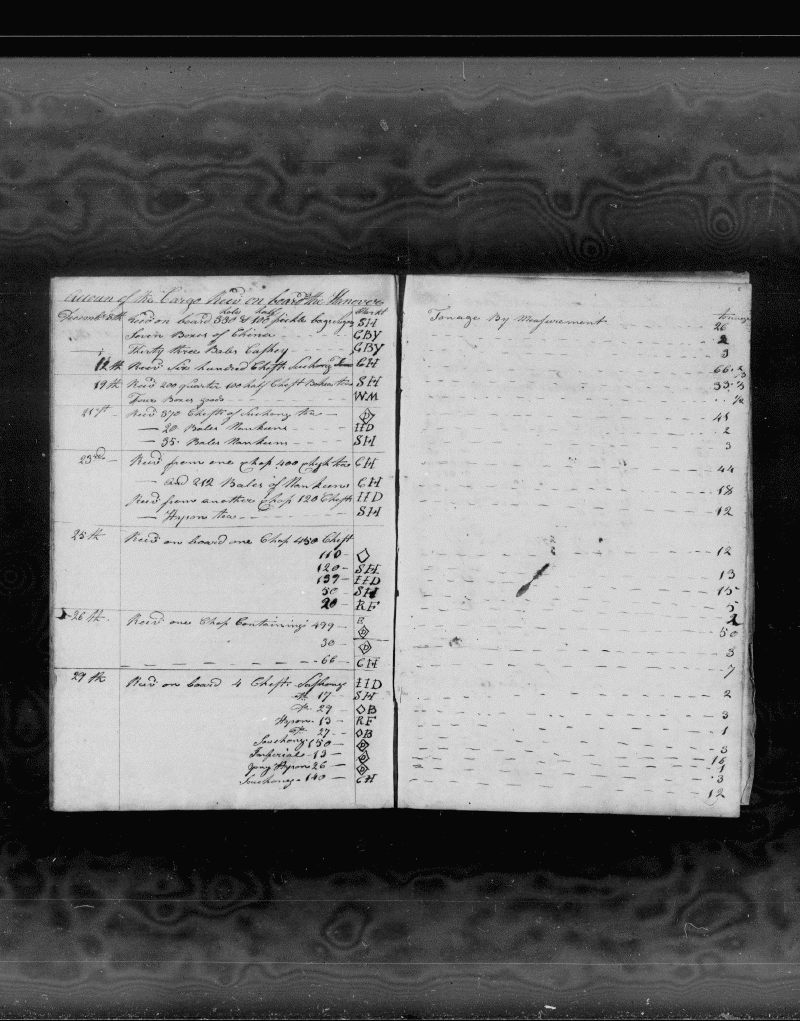 Accoun of the Cargo Rec'd on board the Hanover
hole half Markt
Decemb 8th Rec'd on board 330 & 100 SH
Seven Boxes of China GBY
Thirty three Bales Cashey GBY
12th Rec'd Six hundred Chests Suchong CH
19th Rec'd 200 quarter 100 half Chest tea SH
Four Boxes goods WM
21st Rec'd 370 Chests of Suchong tea D
— 20 Bales Nankeens HD
— 35 Bales Nankeens SH
23rd Rec'd from one Chop 400 tea CH
— and 212 Bales of Nankeens CH
Rec'd from another Chop 120 Chests HD
— Hyson tea SH
25th Rec'd on board one Chop 450 Chest
110 —
120 — SH
139 — HD
50 — SH
20 — RF
26th Rec'd one Chop Containing 499 —
30 —
66 — CH
29th Rec'd on board 4 Chests Suchong HD
17 — SH
29 — OB
Hyson 13 — RF
27 — OB
Souchong 150 —
Imperial 13 —
Yong Hyson 26 —
Souchong 140 — CH
Tonage By Measurement tonnage
26
2
3
66 2/3
33 1/3
1/2
41
2
3
44
18
12
12
13
15
5
2
50
3
7
2
3
1
3
16
1
3
12